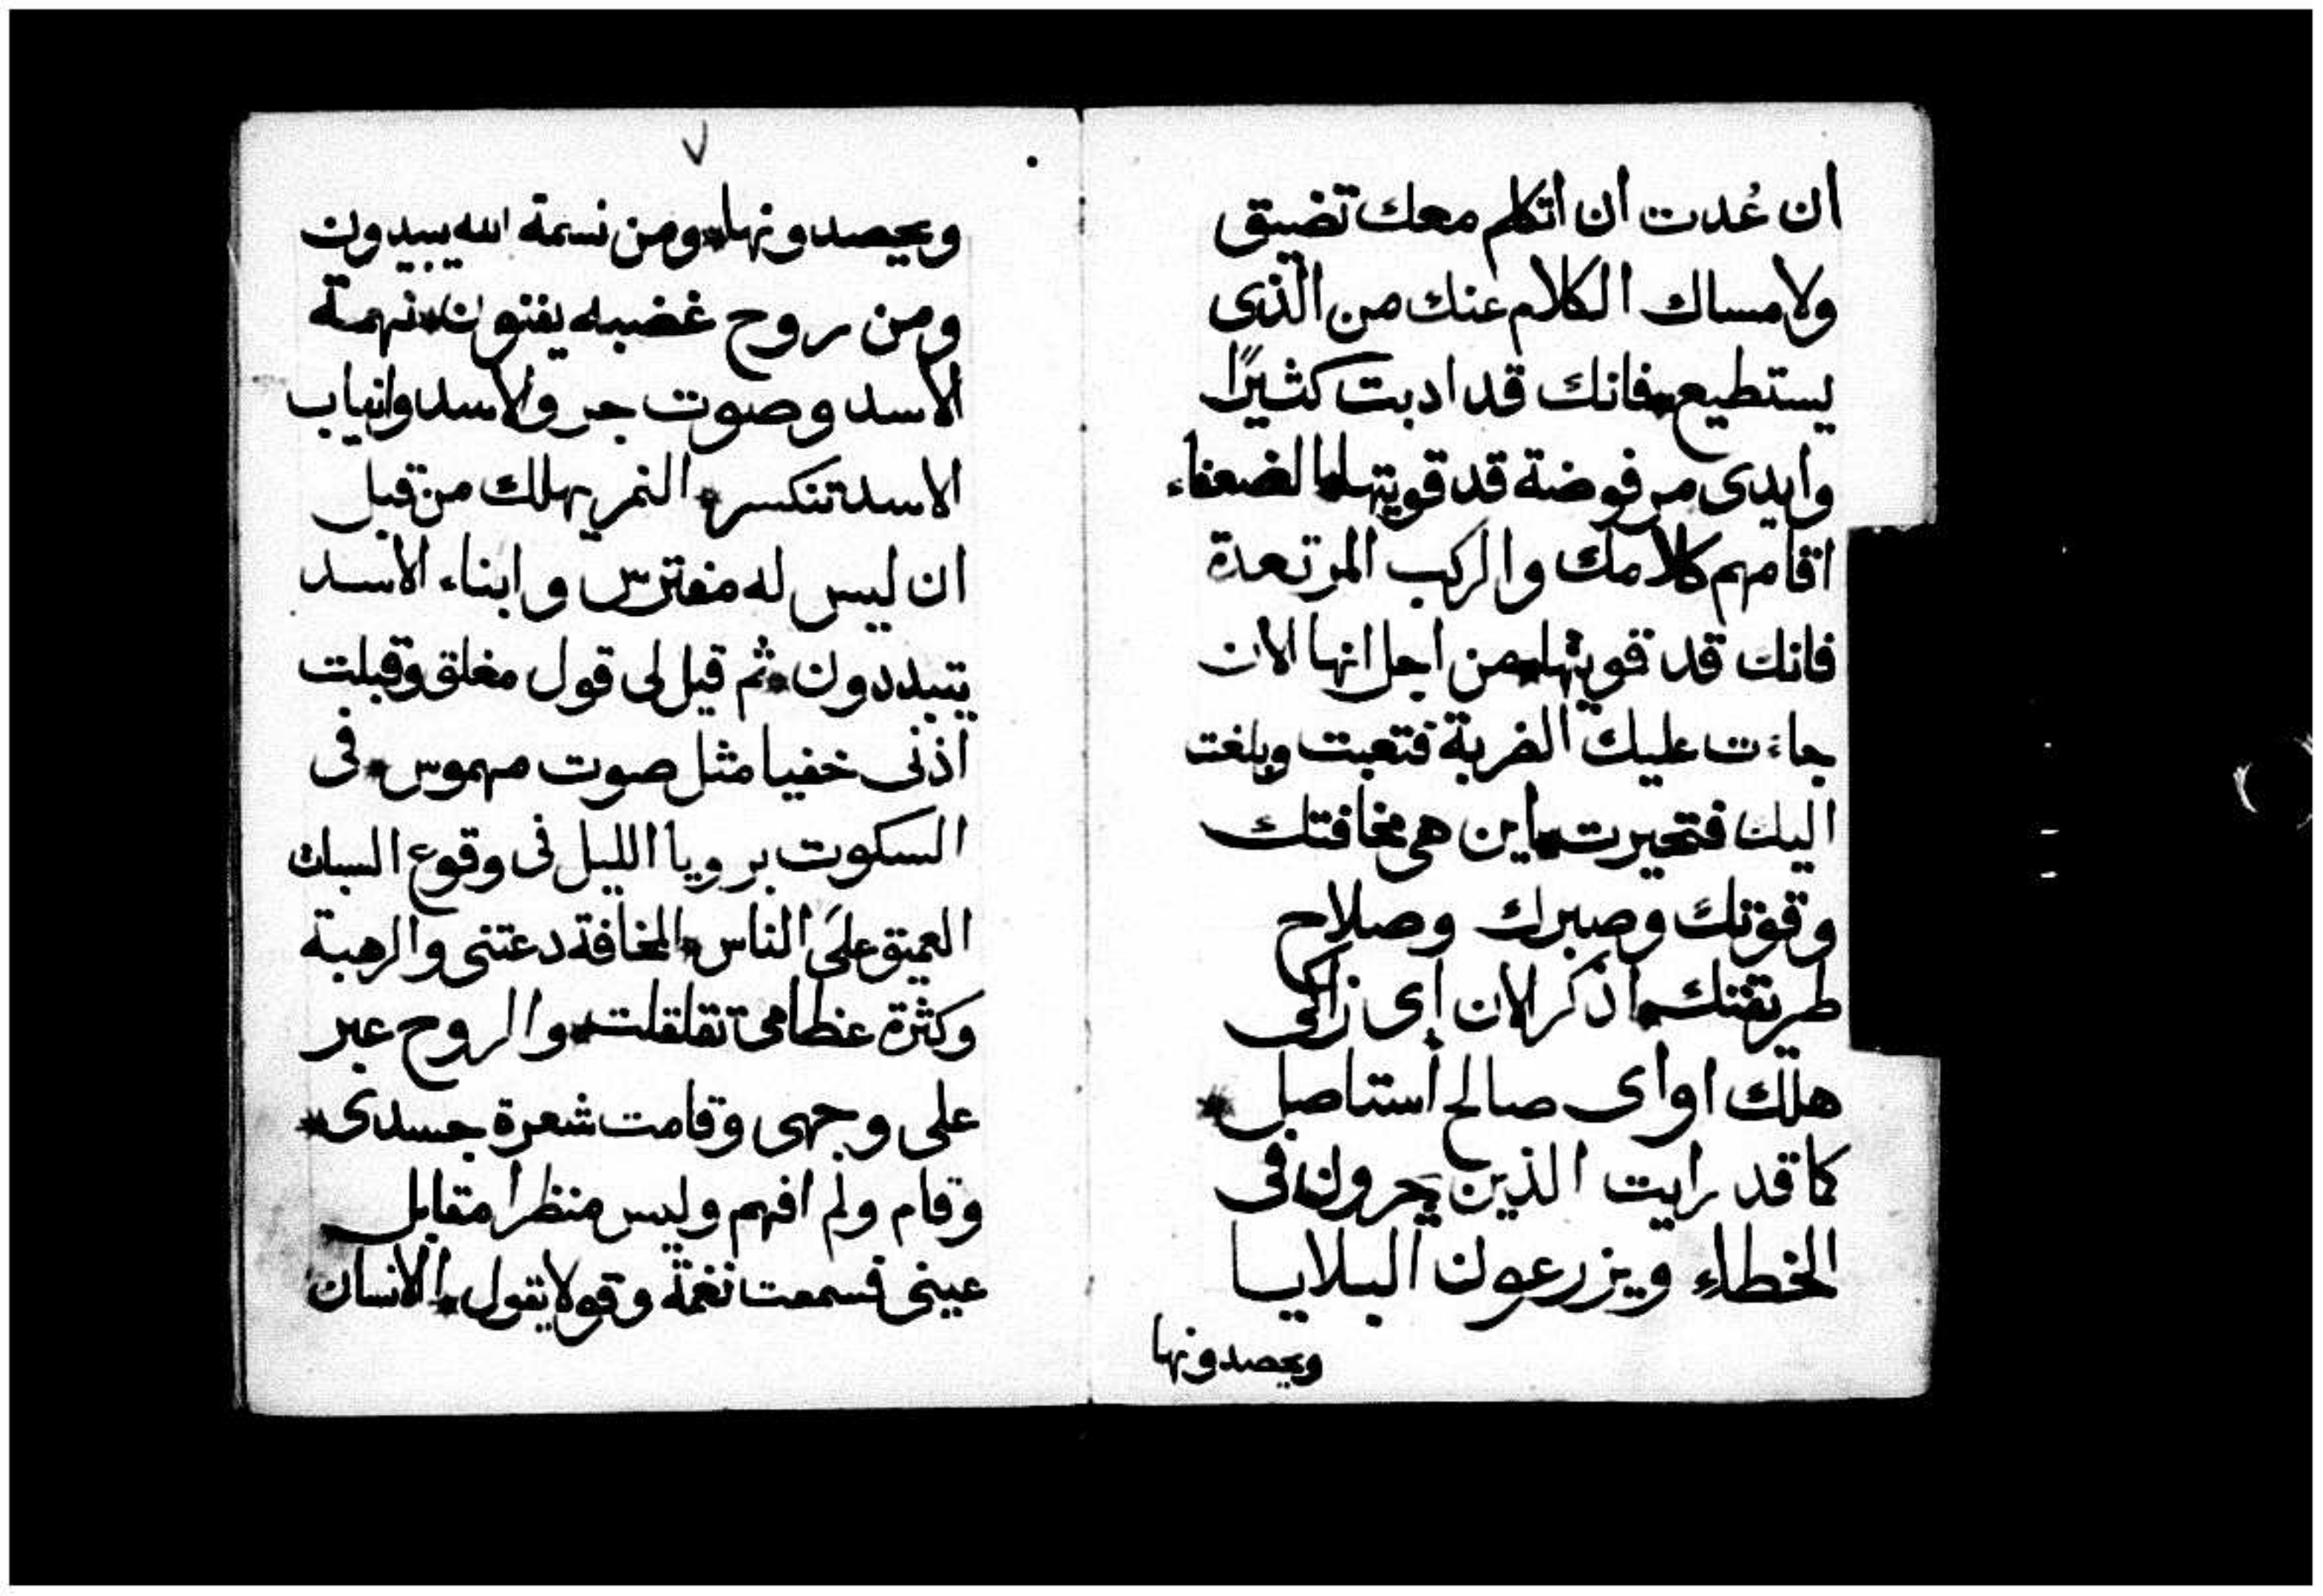 ان عُدت ان اتكلم معك تضيق
ولامساك الكلام عنك من الذى
يستطيع * فانك قد ادبت كثيرًا
وايدى مرفوضة قد قويتها * الضعفاء
اقامهم كلامك والركب المرتعدة
فانك قد قويتها * من اجل انها الان
جاءت عليك الضربة فتعبت وبلغت
اليك فتحيرت * اين هى مخافتك
وقوتك وصبرك وصلاح
طريقتك * اذكر الان اى زاكى
هلك او اى صالح استاصل *
كما قد رايت الذين يحرون فى
الخطاء ويزرعون البلايا
ويحصدونها
٧
ويحصدونها * ومن نسمة الله يبيدون
ومن روح غضبه يفنون * نهمة
الاسد وصوت جرو الاسد وانياب
الاسد تنكسر * النمر يهلك من قبل
ان ليس له مفترس وابناء الاسد
يتبددون * ثم قيل لى قول مغلق وقبلت
اذنى خفيا مثل صوت مهموس * فى
السكوت برويا الليل فى وقوع السبات
العميق على الناس * المخافة دعتنى والرهبة
وكثرة عظامى تقلقلت * والروح عبر
على وجهى وقامت شعرة جسدى *
وقام ولم افهم وليس منظرا مقابل
عينى فسمعت نغمة وقولا يقول * الانسان